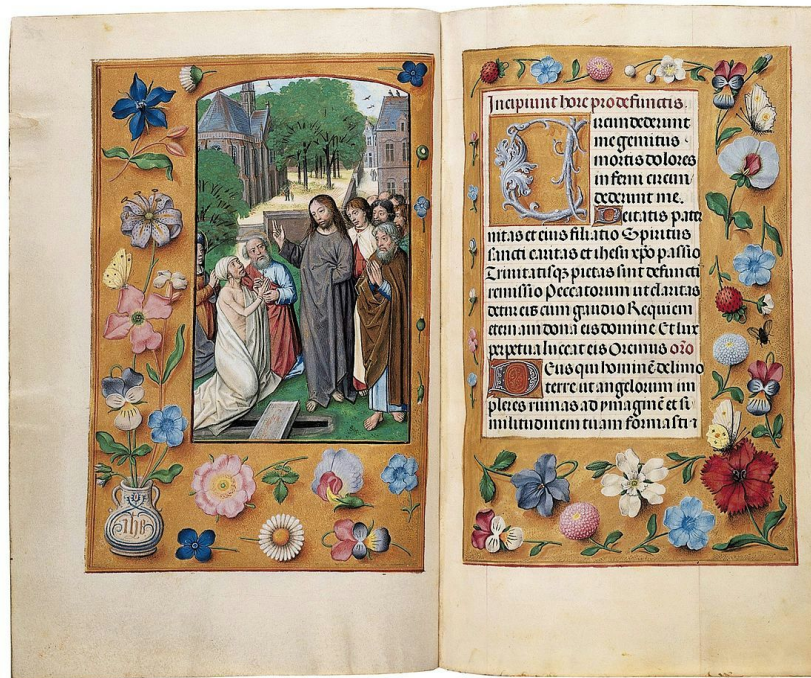 ihs
Incipiunt hore pro defunctis.
Circumdederunt
me gemitus
mortis dolores
inferni circum
dederunt me.
Deitatis pater
nitas et eius filiatio Spiritus
sancti caritas et ihesu xpo passio
Trinitatisqz pietas sint defunctis
remissio Peccatorum ut claritas
detur eis cum gaudio Requiem
eternam dona eis domine Et lux
perpetua luceat eis Oremus oro
Deus qui hominē de limo
terre ut angelorum im
pleres ruinas ad ymaginē et si
militudinem tuam formasti